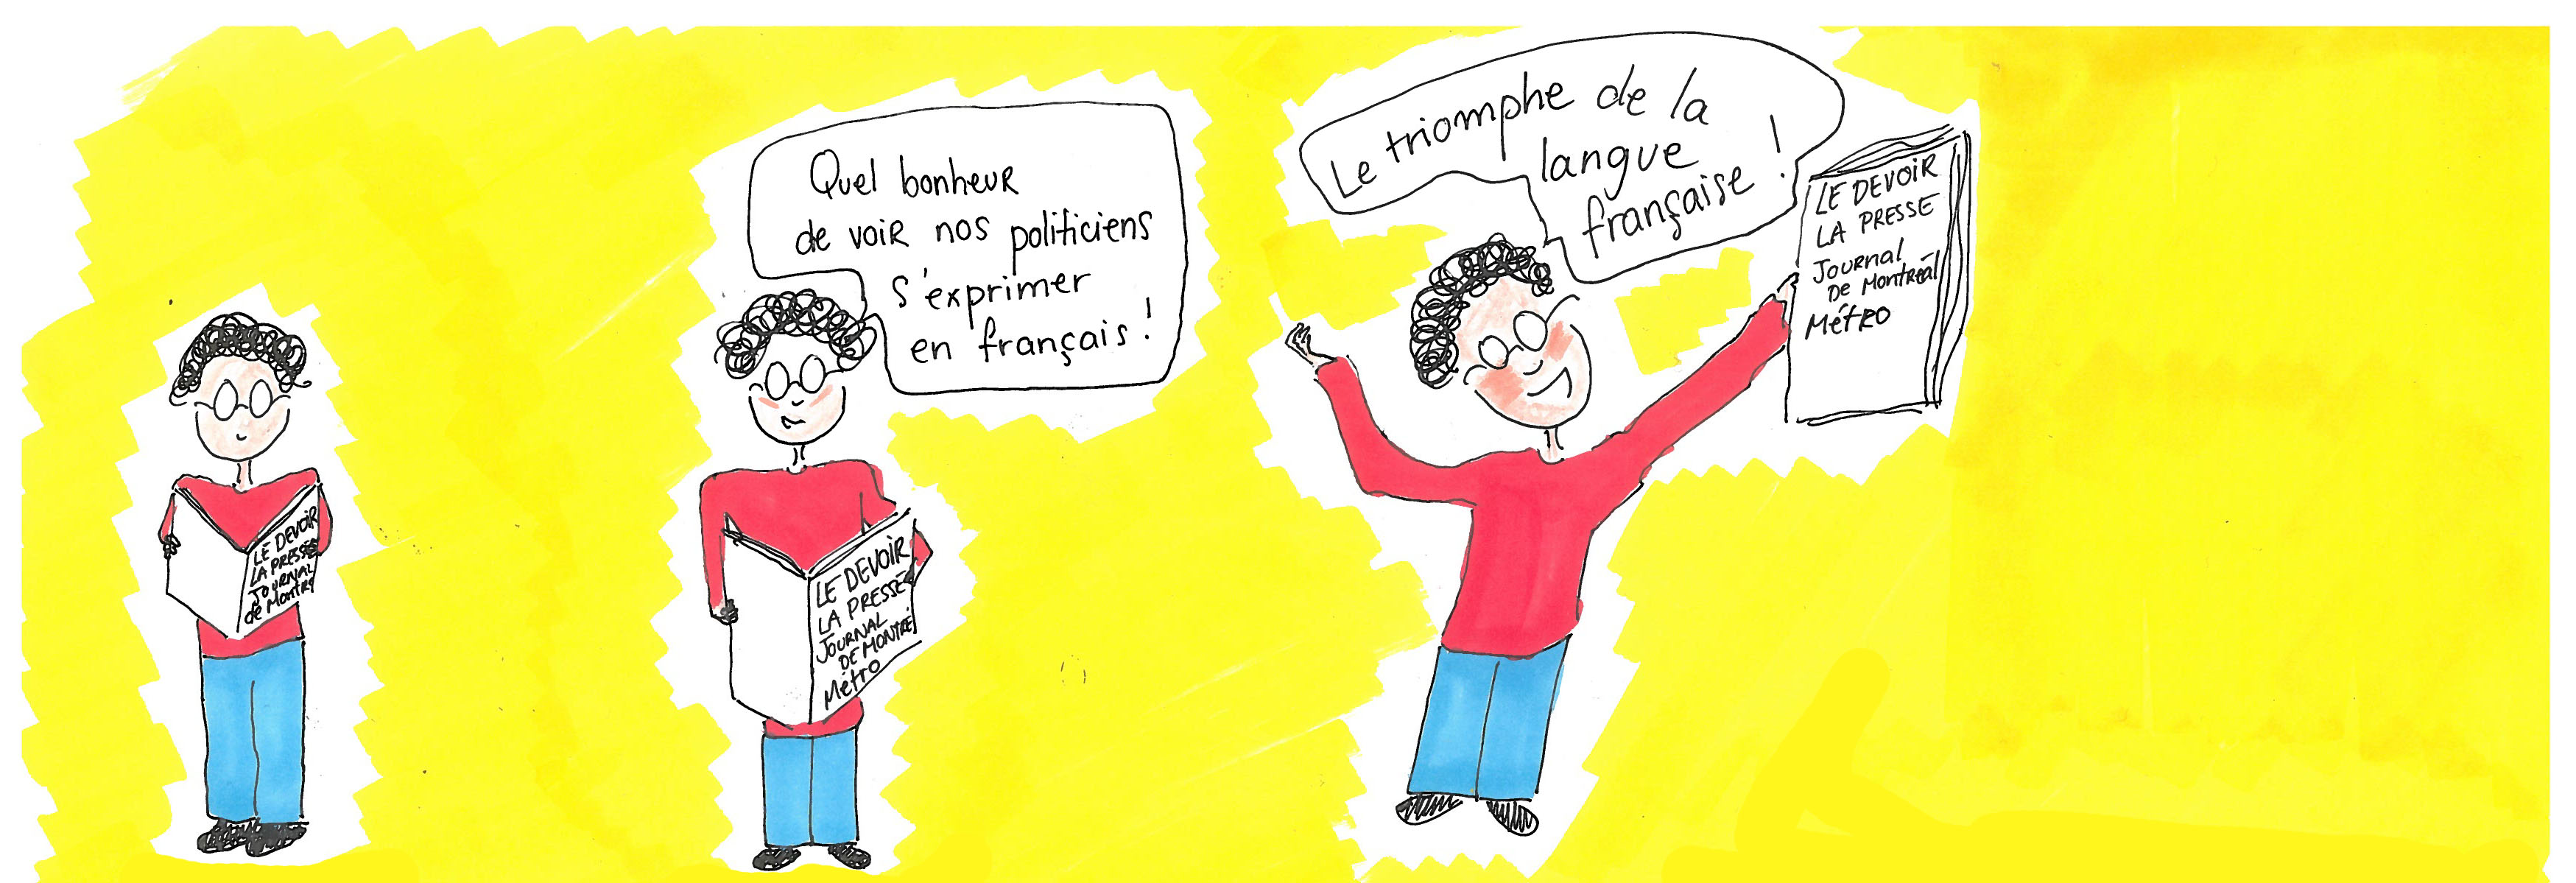 LE DEVOIR
LA PRESSE
JOURNAL
de Montré
Quel bonheur
de voir nos politiciens
s'exprimer
en français !
LE DEVOIR
LA PRESSE
JOURNAL
DE MONTRÉ
Métro
Le triomphe de la
langue
française !
LE DEVOIR
LA PRESSE
Journal
De Montréal
Métro